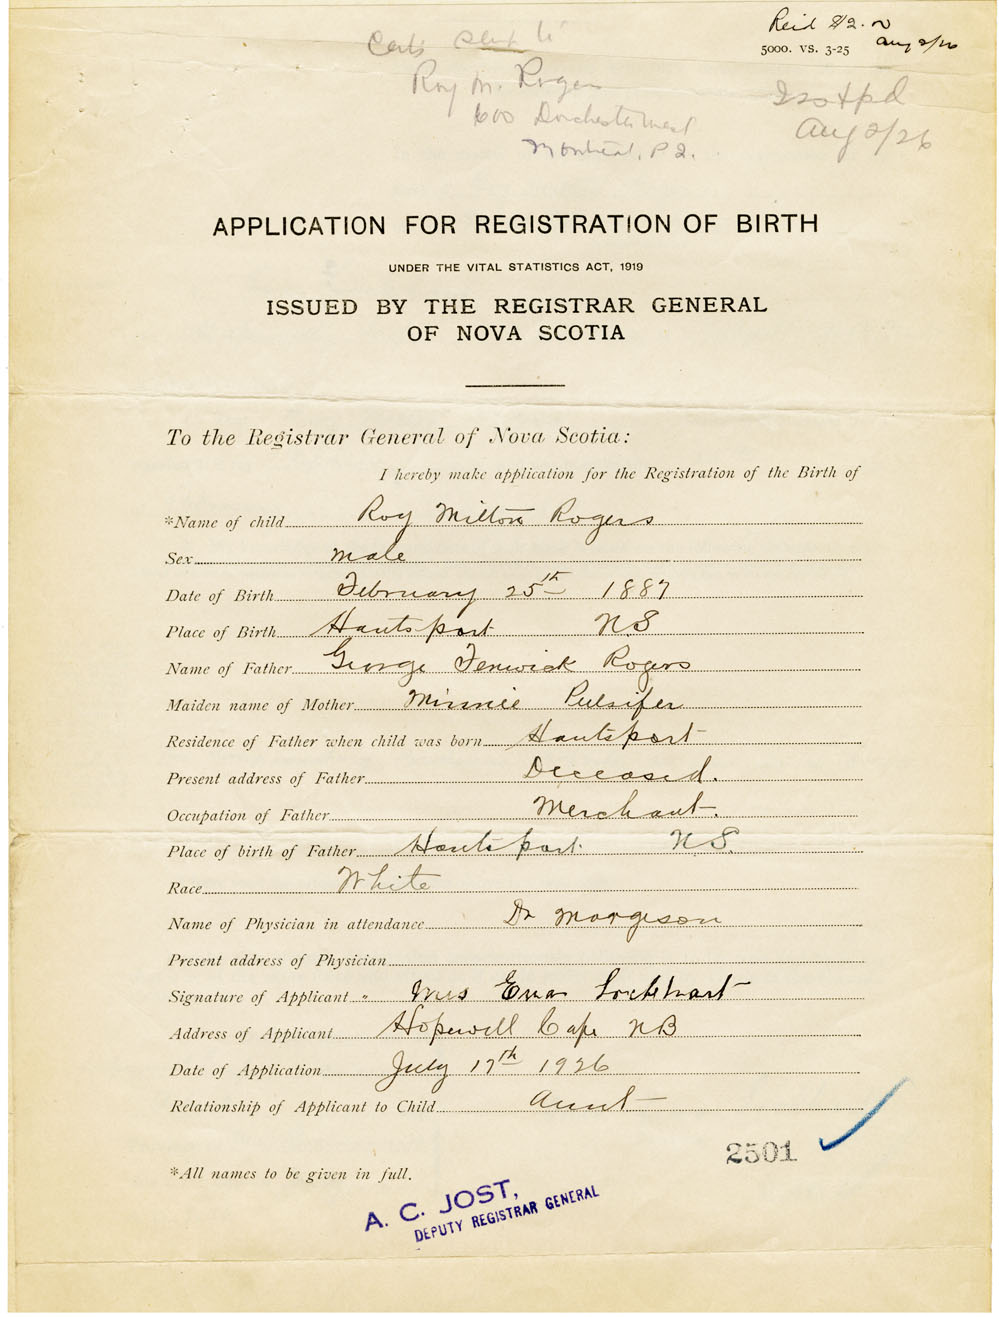 Reid $2.
5000. VS. 3-25 Aug 2/26
Roy M. Rogers
Aug 2/26
600 Dorchester West
Montreal, P.Q.
APPLICATION FOR REGISTRATION OF BIRTH
UNDER THE VITAL STATISTICS ACT, 1919
ISSUED BY THE REGISTRAR GENERAL
OF NOVA SCOTIA
To the Registrar General of Nova Scotia:
I hereby make application for the Registration of the Birth of
*Name of child Roy Milton Rogers
Sex male
Date of Birth February 25th 1887
Place of Birth Hantsport NS
Name of Father George Fenwick Rogers
Maiden name of Mother Minnie Pulsifer
Residence of Father when child was born Hantsport
Present address of Father Deceased.
Occupation of Father Merchant.
Place of birth of Father Hantsport NS.
Race White
Name of Physician in attendance Dr Margeson
Present address of Physician
Signature of Applicant " Mrs Eva Lockhart
Address of Applicant Hopewell Cape NB
Date of Application July 17th 1926
Relationship of Applicant to Child Aunt
2501
*All names to be given in full.
A. C. JOST,
DEPUTY REGISTRAR GENERAL